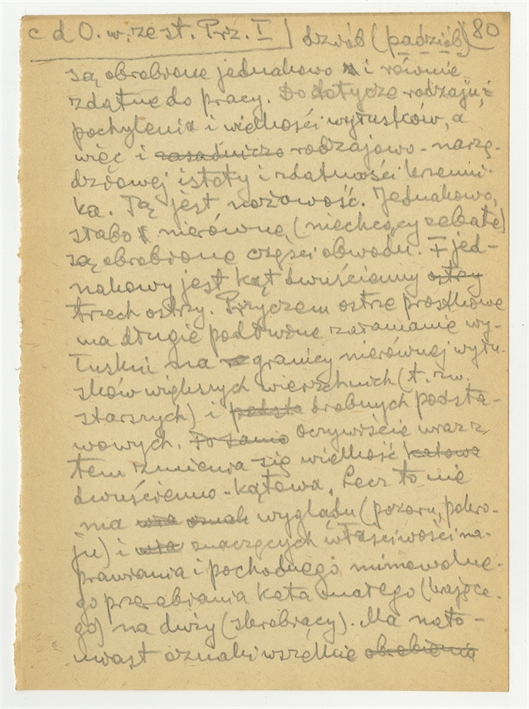 c d O. w. ze st. Prz. I dziób (padziób) 80
są obrobione jednakowo i równie
zdatne do pracy. Do dotyczę rodzaju, i
pochylenia i wielkości wyłusków, a
więc i zasadniczo rodzajowo-narzę-
dziowej istoty i zdatności krzemi-
ka. Tą jest nożowość. Jednakowo,
słabo nierówne (niechcący zębate)
są obrobione części obwodu. I jed-
nakowy jest kąt dwuścienny ostrzy
trzech ostrzy. Przyczem ostrze prostkowe
ma długie podłużne załamanie wy-
łuskni na granicy nierównej wyłu-
sków większych wierzchnich (t. zw.
starszych) i drobnych podsta-
wowych. To samo Oczywiście wraz z
tem zmienia się wielkość kątowa
dwuścienno-kątowa. Lecz to nie
ma wyglądu (pozoru, pokro-
ju) i znaczących właściwości na-
prawiania i pochodnego mimowolne-
go przerabiania kąta małego (krające-
go) na duży (skrobiący). Ma nato-
miast oznaki wszelkie obrobienia